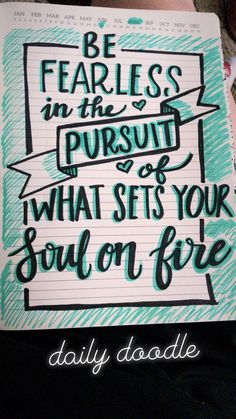 JAN FEB MAR APR MAY JUN JUL AUG SEP OCT NOV DEC
BE
FEARLESS
in the
PURSUIT
of
WHAT SETS YOUR
Soul on fire
daily doodle